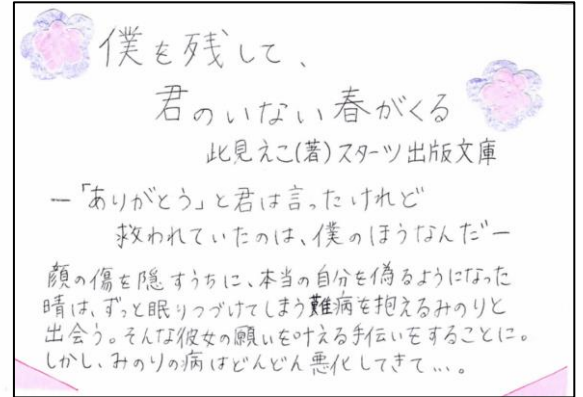 僕を残して、
君のいない春がくる
此見えこ(著)スターツ出版文庫
ー「ありがとう」と君は言ったけれど
救われていたのは、僕のほうなんだー
顔の傷を隠すうちに、本当の自分を偽るようになった
晴は、ずっと眠りつづけてしまう難病を抱えるみのりと
出会う。そんな彼女の願いを叶える手伝いをすることに。
しかし、みのりの病はどんどん悪化してきて…。